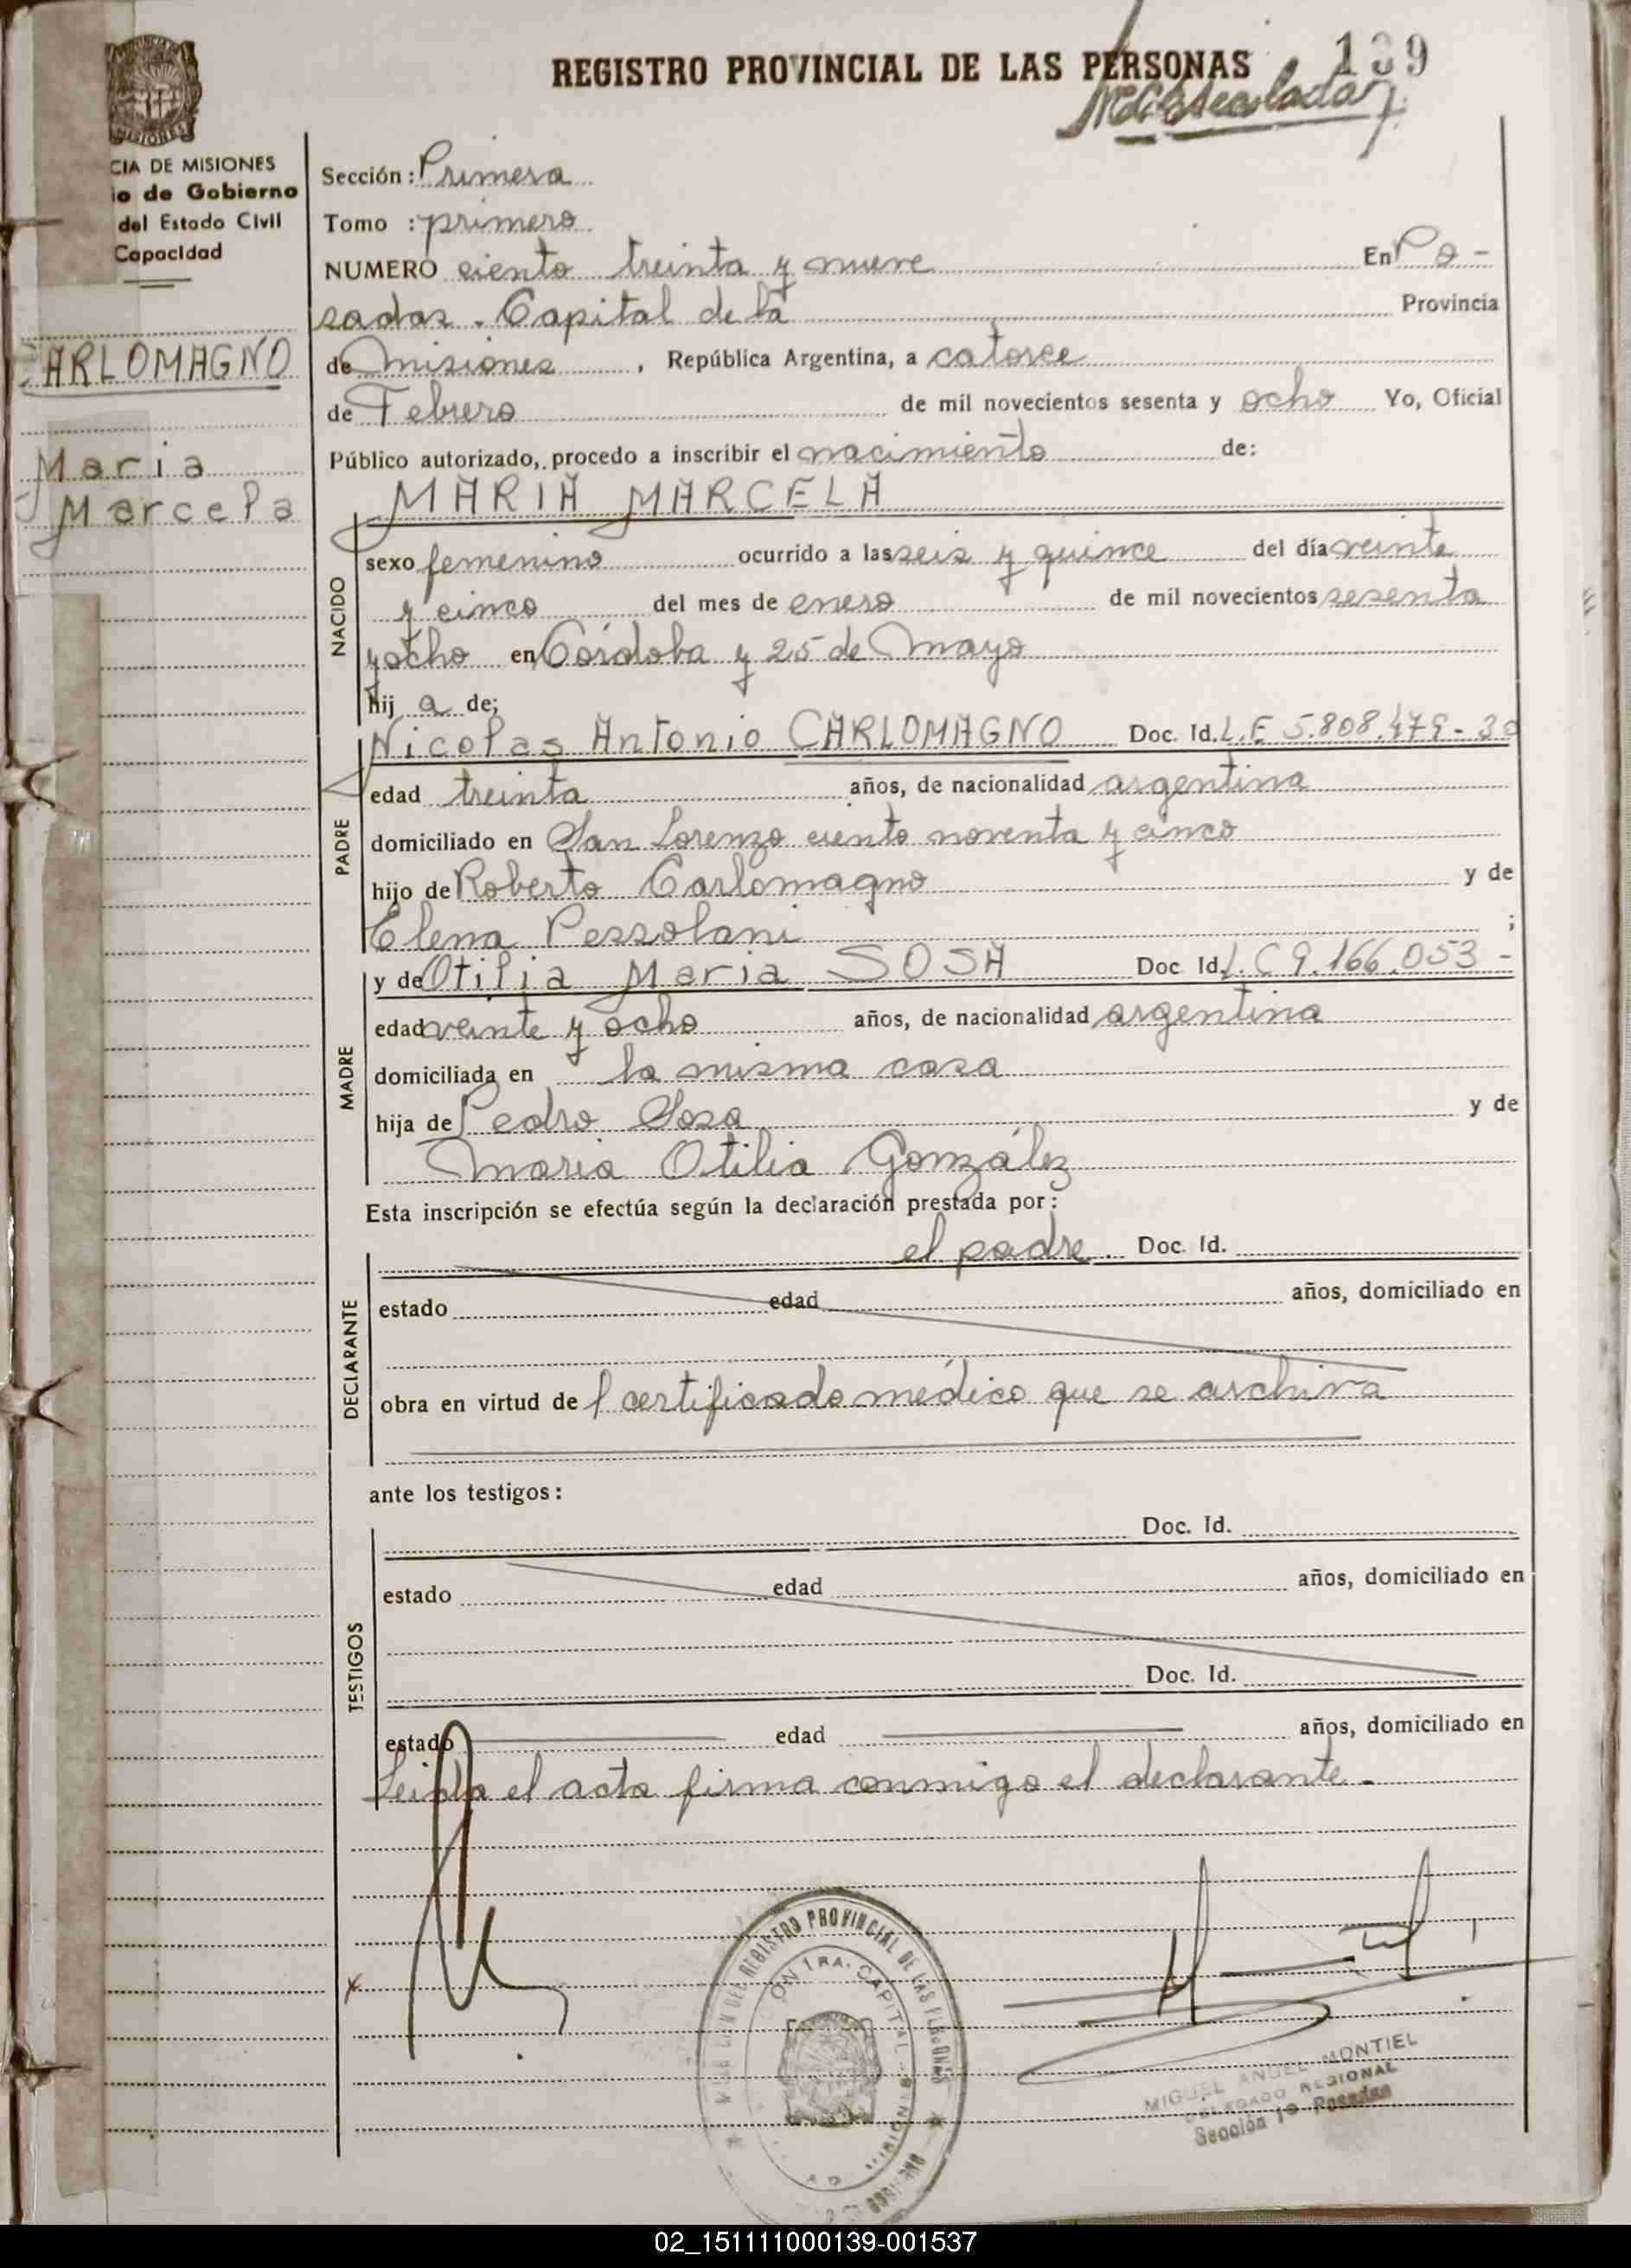 REGISTRO PROVINCIAL DE LAS PERSONAS 139
MISIONES
CIA DE MISIONES
io de Gobierno
del Estado Civil
Capacidad
CARLOMAGNO
Maria
Marcela
Sección: Primera
Tomo : primero
NUMERO ciento treinta y nueve En Po-
sadas. Capital de la Provincia
de Misiones, República Argentina, a catorce
de Febrero de mil novecientos sesenta y ocho Yo, Oficial
Público autorizado, procedo a inscribir el nacimiento de:
MARIA MARCELA
NACIDO
sexo femenino ocurrido a las seis y quince del día veinte
y cinco del mes de enero de mil novecientos sesenta
y ocho en Córdoba y 25 de Mayo
hij a de;
PADRE
Nicolas Antonio CARLOMAGNO Doc. Id. L.E 5.808.479-30
edad treinta años, de nacionalidad argentina
domiciliado en San Lorenzo ciento noventa y cinco
hijo de Roberto Carlomagno y de
Elena Pessolani ;
MADRE
y de Otilia Maria SOSA Doc Id. L.C 9.166.053-
edad veinte y ocho años, de nacionalidad argentina
domiciliada en la misma casa
hija de Pedro Sosa y de
Maria Otilia González
Esta inscripción se efectúa según la declaración prestada por:
DECLARANTE
el padre. Doc. Id.
estado edad años, domiciliado en
obra en virtud de l certificado médico que se archiva
ante los testigos:
TESTIGOS
Doc. Id.
estado edad años, domiciliado en
Doc. Id.
estado edad años, domiciliado en
Leida el acta firma conmigo el declarante.-
REGISTRO PROVINCIAL DE LAS PERSONAS
1RA. CAPITAL
MIGUEL ANGEL MONTIEL
DELEGADO REGIONAL
Sección 1ª Posadas
02_151111000139-001537